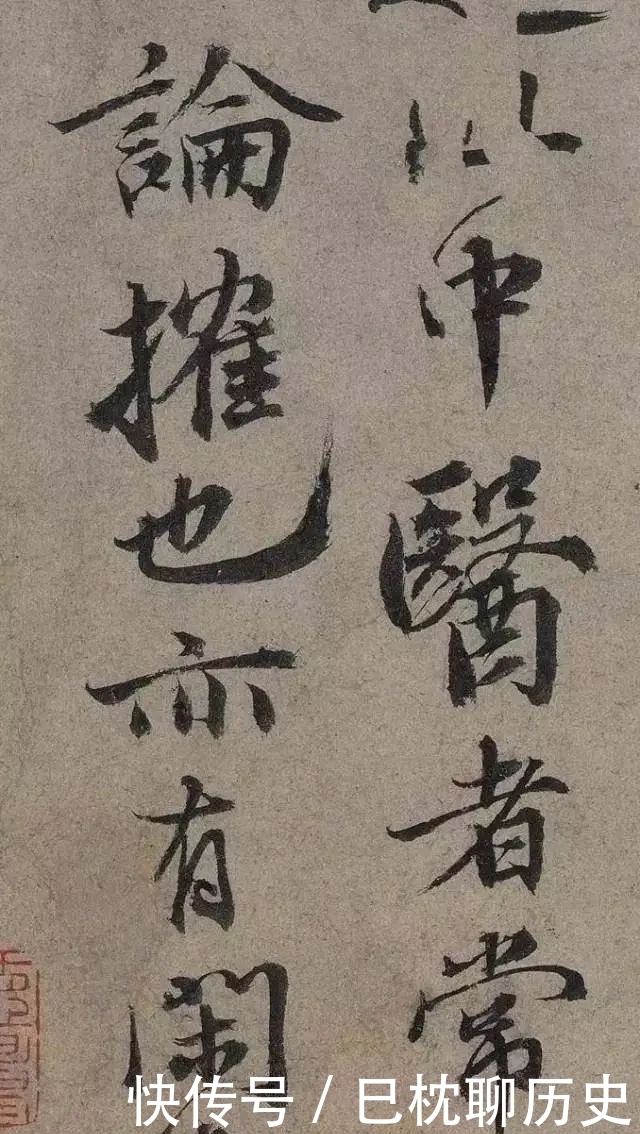 醫者常
論搉也亦有
快传号 / 巳枕聊历史